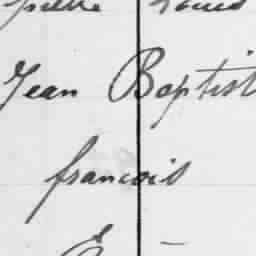 Jean Baptist
francois